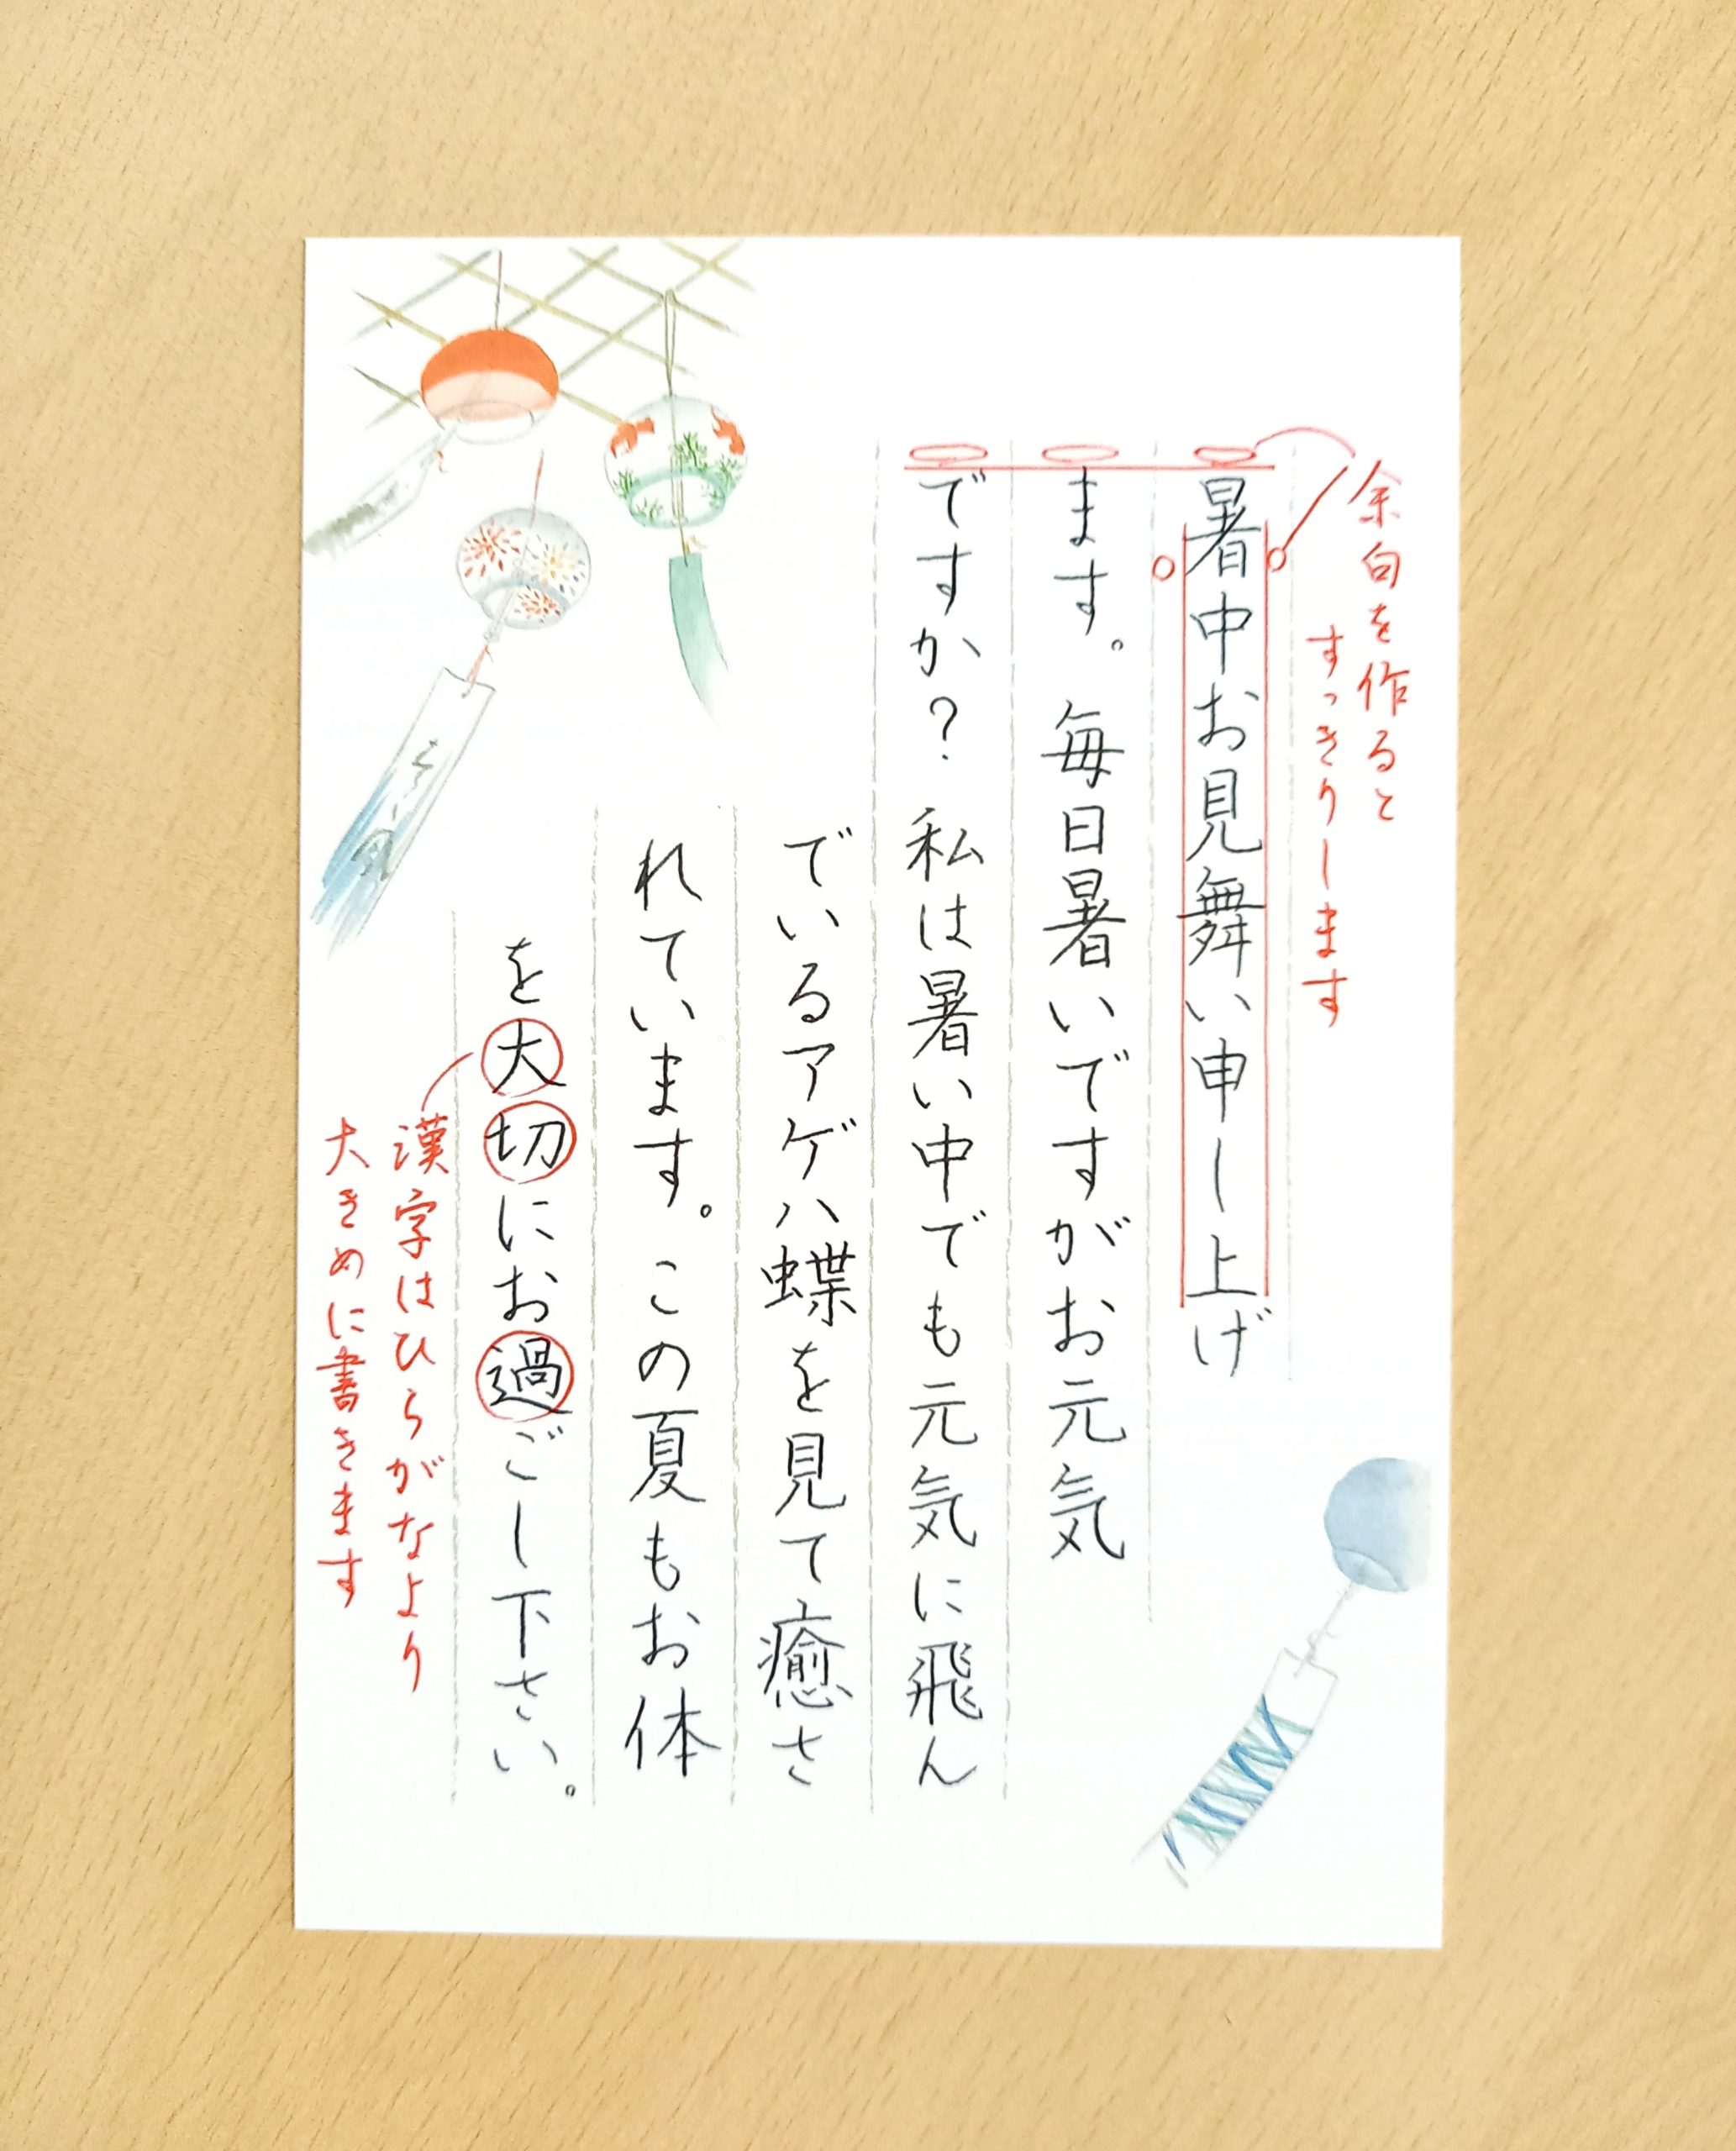 余白を作ると
すっきりします
暑中お見舞い申し上げ
ます。毎日暑いですがお元気
ですか？私は暑い中でも元気に飛ん
でいるアゲハ蝶を見て癒さ
れています。この夏もお体
を大切にお過ごし下さい。
漢字はひらがなより
大きめに書きます